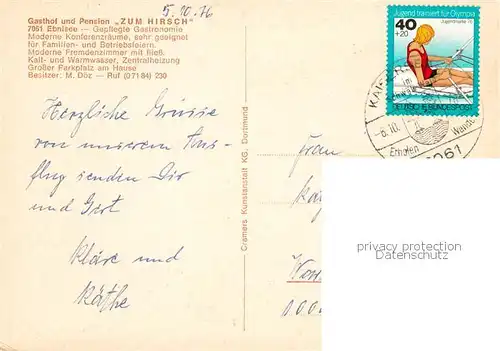 5.10.76
Gasthof und Pension „ZUM HIRSCH"
7061 Ebnisee — Gepflegte Gastronomie
Moderne Konferenzräume, sehr geeignet
für Familien- und Betriebsfeiern.
Moderne Fremdenzimmer mit fließ.
Kalt- und Warmwasser, Zentralheizung
Großer Parkplatz am Hause
Besitzer: M. Döz — Ruf (07184) 230
Jugend trainiert für Olympia
Jugendmarke 76
40
+20
DEUTSCHE BUNDESPOST
-6.10.
Erholen
7061
Herzliche Grüsse
von unserem Aus-
flug senden Dir
und Girt
Kläre und
Käthe
Cramers Kunstanstalt KG, Dortmund
Frau
privacy protection
Datenschutz